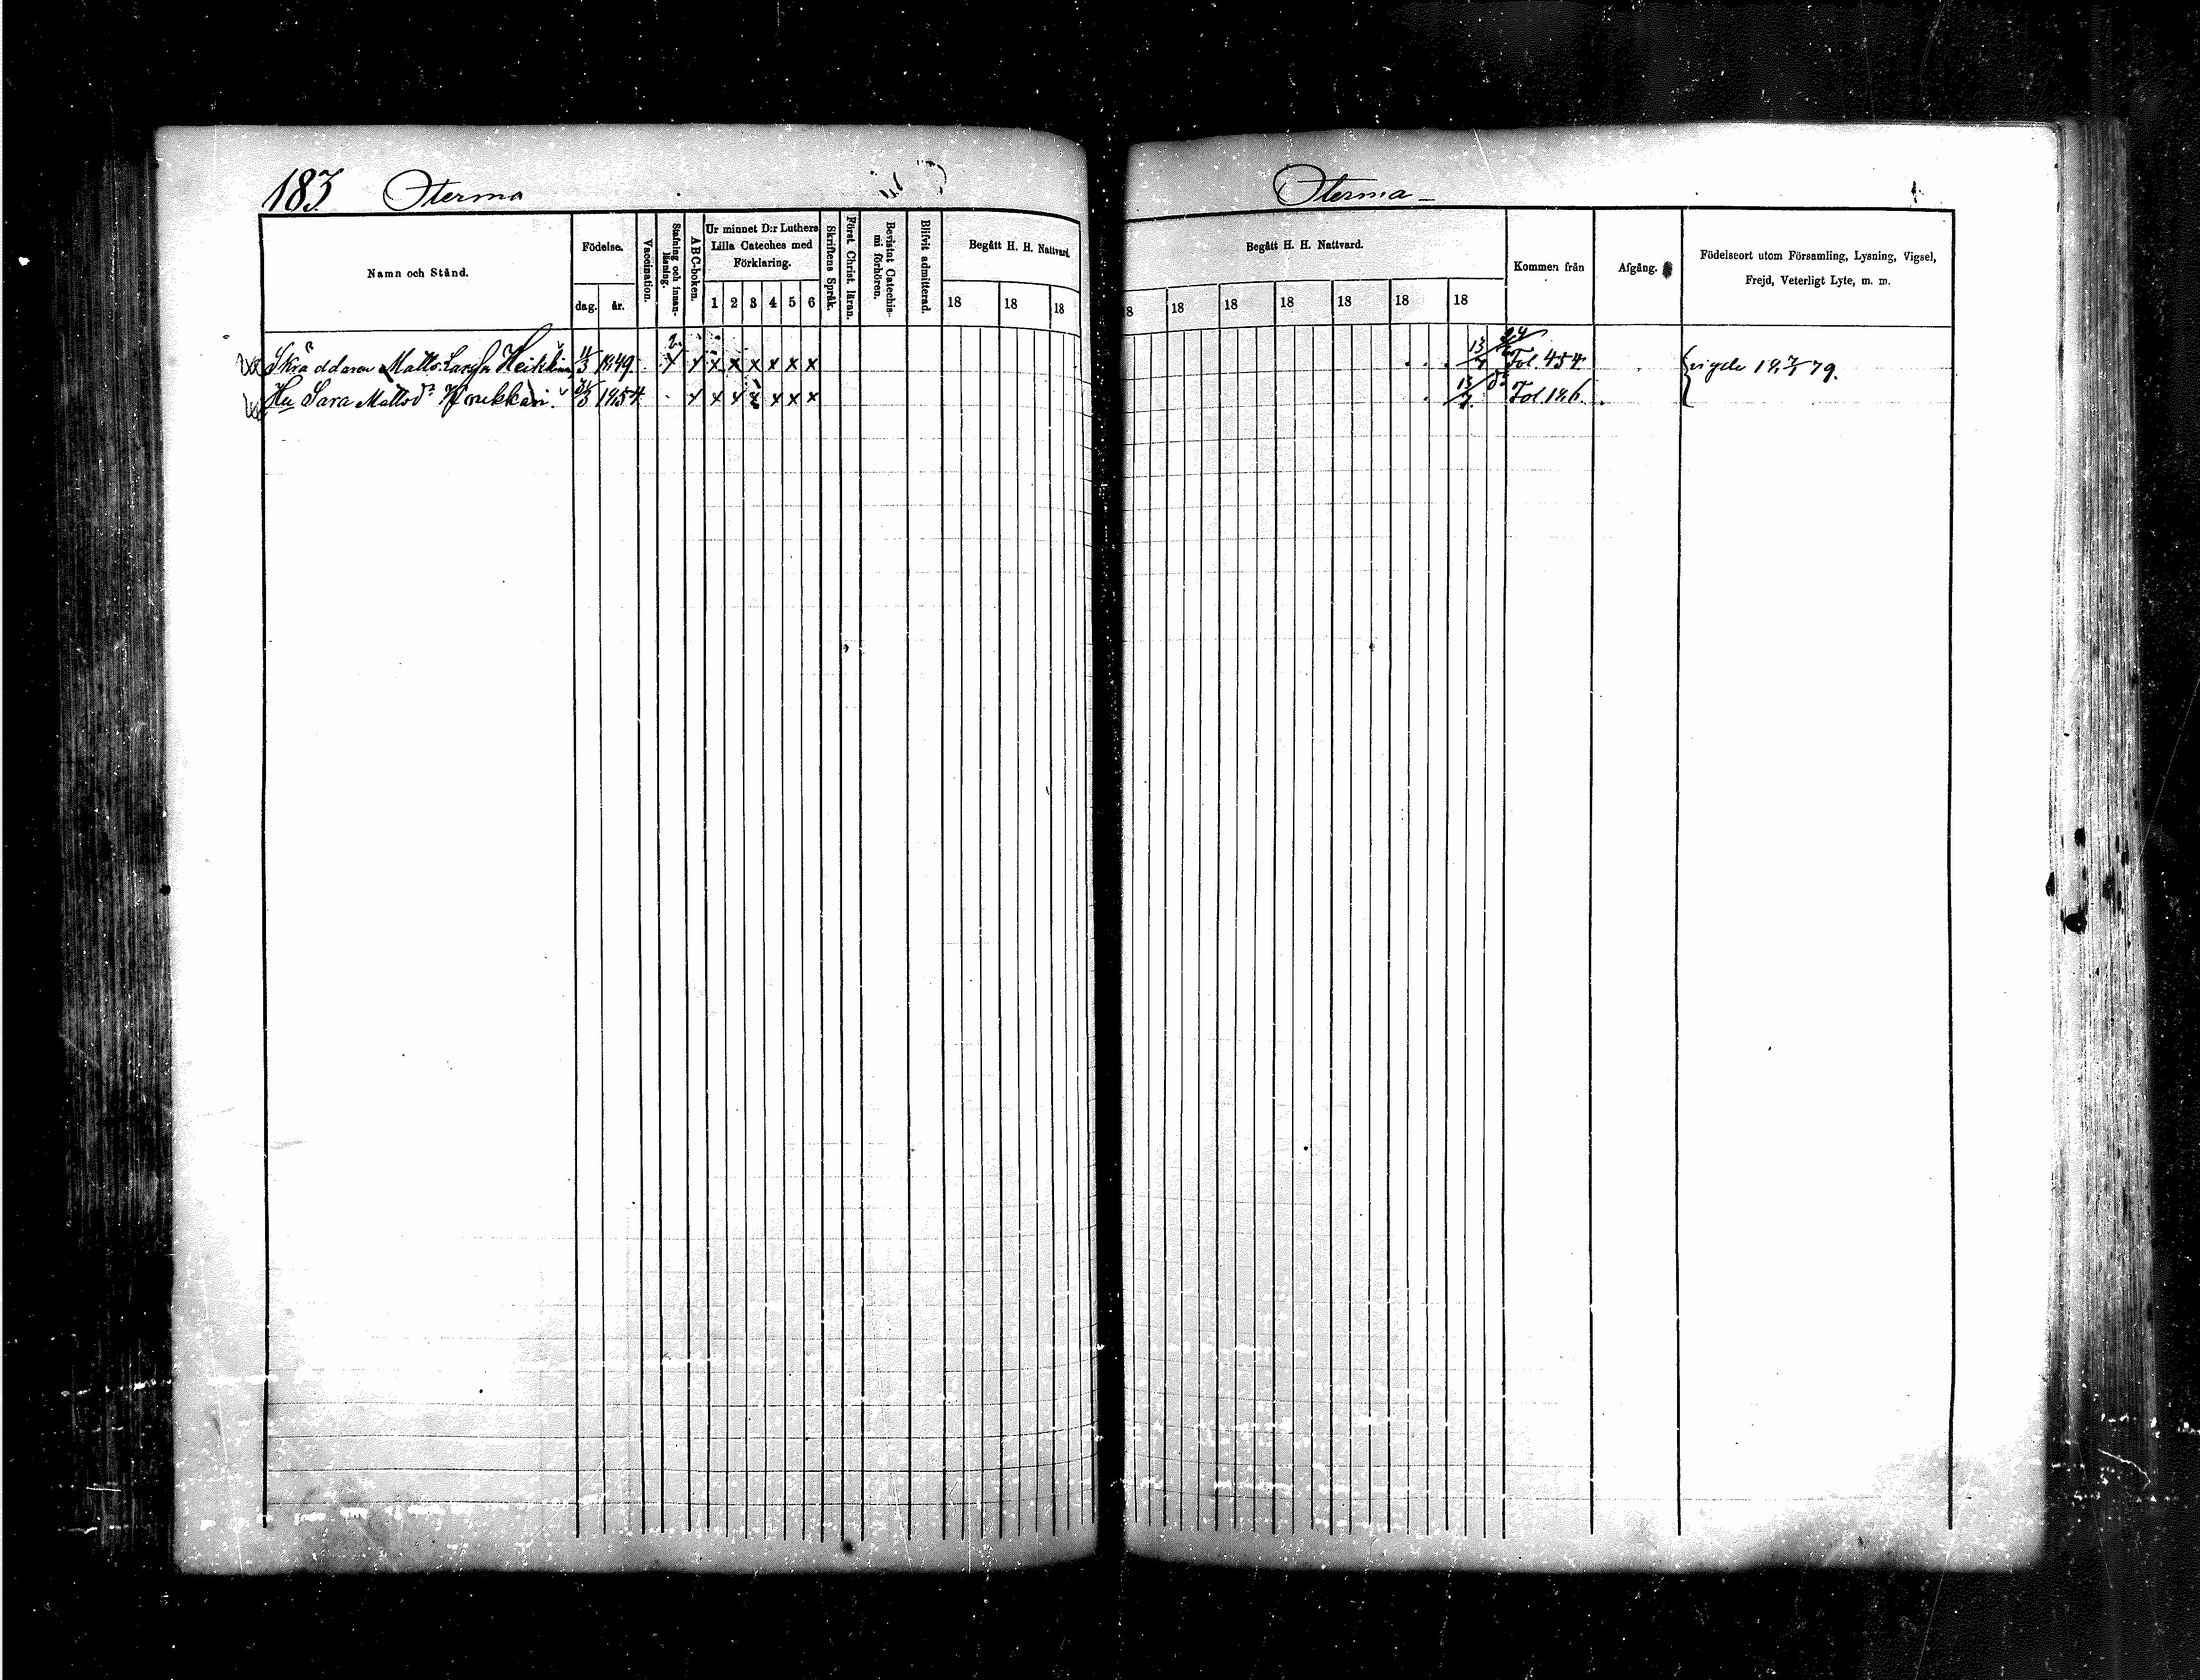 183 Oterma
Oterma
Namn och Stånd.
Födelse.
dag. år.
Vaccination.
Stafning och innanläsning.
ABC-boken.
Ur minnet D:r Luthers
Lilla Cateches med
Förklaring.
1 2 3 4 5 6
Skriftens Språk.
Först. Christ. läran.
Bevistat Catechismi förhören.
Blifvit admitterad.
Begått H. H. Nattvard.
18 18 18
Begått H. H. Nattvard.
18 18 18 18 18 18 18
Kommen från
Afgång.
Födelseort utom Församling, Lysning, Vigsel,
Frejd, Veterligt Lyte, m. m.
Skräddaren Matts Larss. Heikkinen 11/3 1849 x x x x x x x x 13/7 Fol. 454 vigde 18 79.
Hu Sara Mattsdr 1854 x x x x x x x 13/7 Fol 186